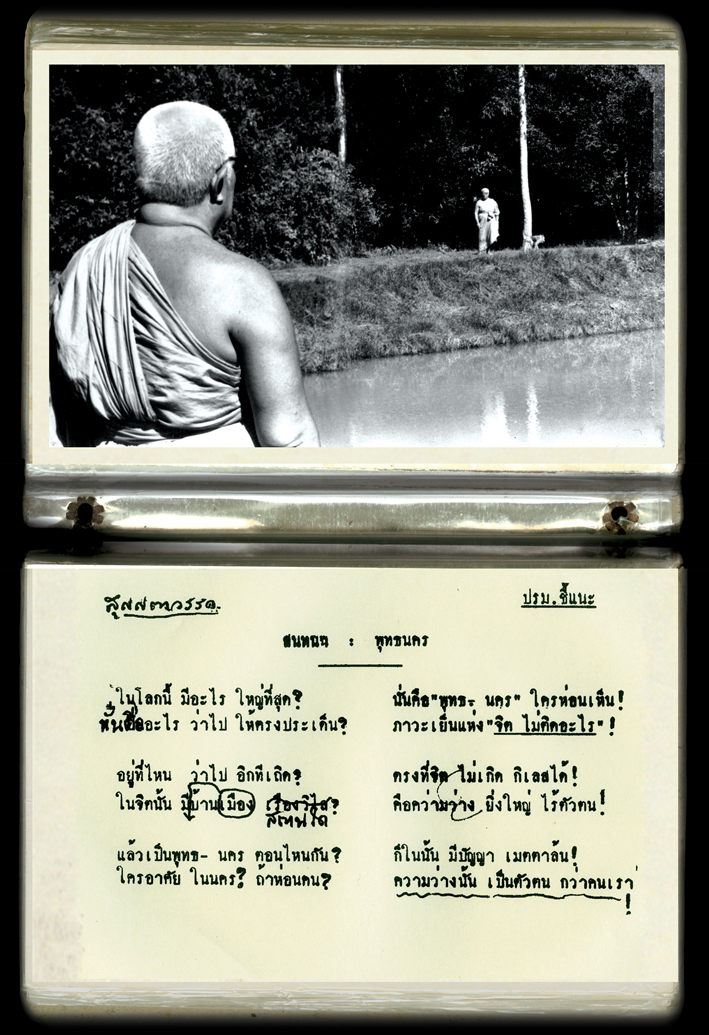 สุญญตาวรรค. ปรม.ชี้แนะ
สนทนา : พุทธนคร
ในโลกนี้ มีอะไร ใหญ่ที่สุด? นั่นคือ"พุทธ- นคร" ใครห่อนเห็น!
นั่นคืออะไร ว่าไป ให้ตรงประเด็น? ภาวะเย็นแห่ง"จิต ไม่ติดอะไร"!
อยู่ที่ไหน ว่าไป อีกทีเถิด? ตรงที่จิต ไม่เกิด กิเลสได้!
ในจิตนั้น มีบ้านเมือง คือความว่าง ยิ่งใหญ่ ไร้ตัวตน!
แล้วเป็นพุทธ- นคร ตอนไหนกัน? ก็ในนั้น มีปัญญา เมตตาล้น!
ใครอาศัย ในนคร? ถ้าห่อนคน? ความว่างนั้น เป็นตัวตน กว่าคนเรา!